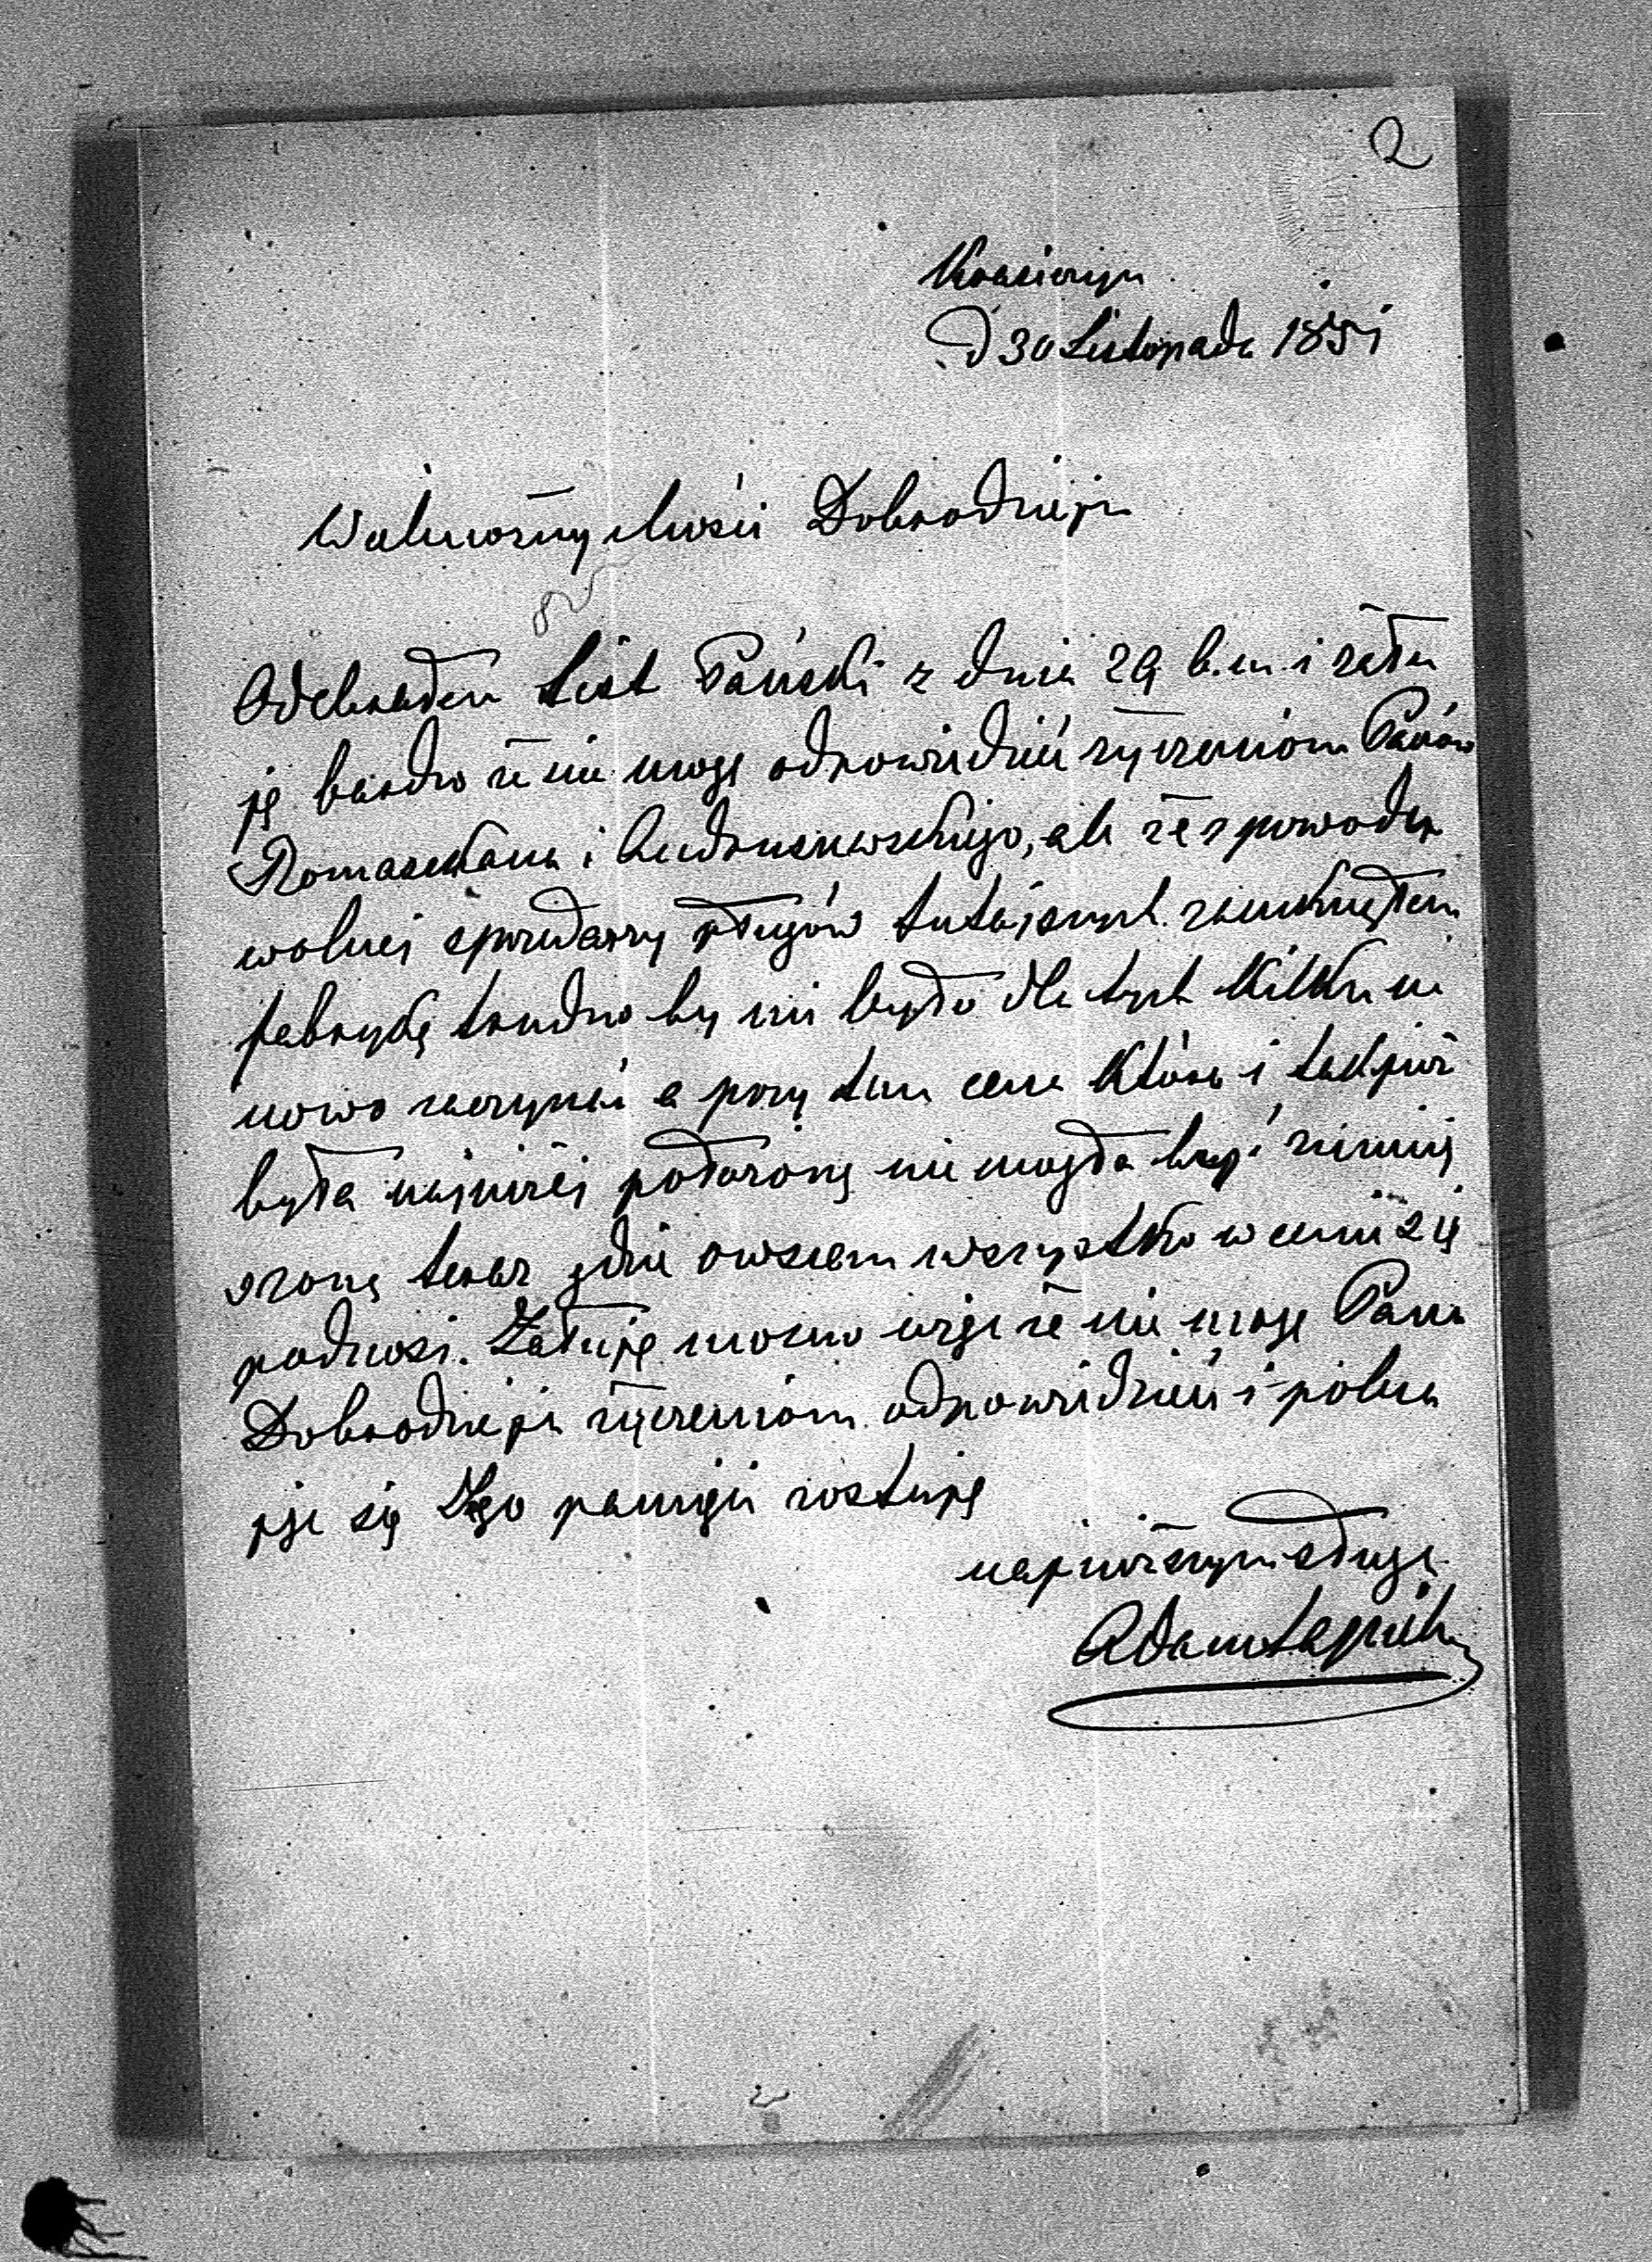 2
Krasiczyn
D 30 Listopada 1851
Wielmożny Mości Dobrodzieju
Odebrałem List Pański z dnia 29 b.m. i żału
ję bardzo że nie mogę odpowiedzieć życzeniom Panów
Romaszkana i ale że z powodu
wolnej sprzedaży pługów tutejszych zamknąłem
fabrykę trudno by mi było dla tych kilku na
nowo zaczynać a przy tem cena która i takjuż
była najniżej położoną nie mogła być zniżę
oną teraz gdzie owszem wszystko w cenie się
podnosi. Żałuję mocno więc że nie mogę Pana
Dobrodzieja życzeniom odpowiedzieć i poleca
jąc się Jego pamięci zostaję
najniższym sługą
Adam Sapieha